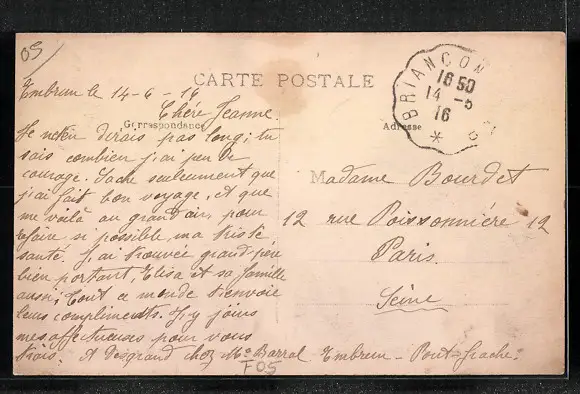 05
CARTE POSTALE
Correspondance
Adresse
BRIANÇON
16 50
14 -6
16
*
Embrun le 14-6-16
Chère Jeanne
Je t'en dirais pas long; tu
sais combien j'ai peu de
courage. Sache seulement que
j'ai fait bon voyage, et que
me voilà au grand air, pour
refaire si possible, ma triste
santé. J'ai trouvée grand-père
bien portant, Elisa et sa famille
aussi; tout ce monde t'envoie
leurs compliments. J'y joins
mes affectueuses pour vous
trois. A Desgrand chez Me Barral Embrun - Pont-frache.
F05
Madame Bourdet
12 rue Poissonnière 12
Paris.
Seine